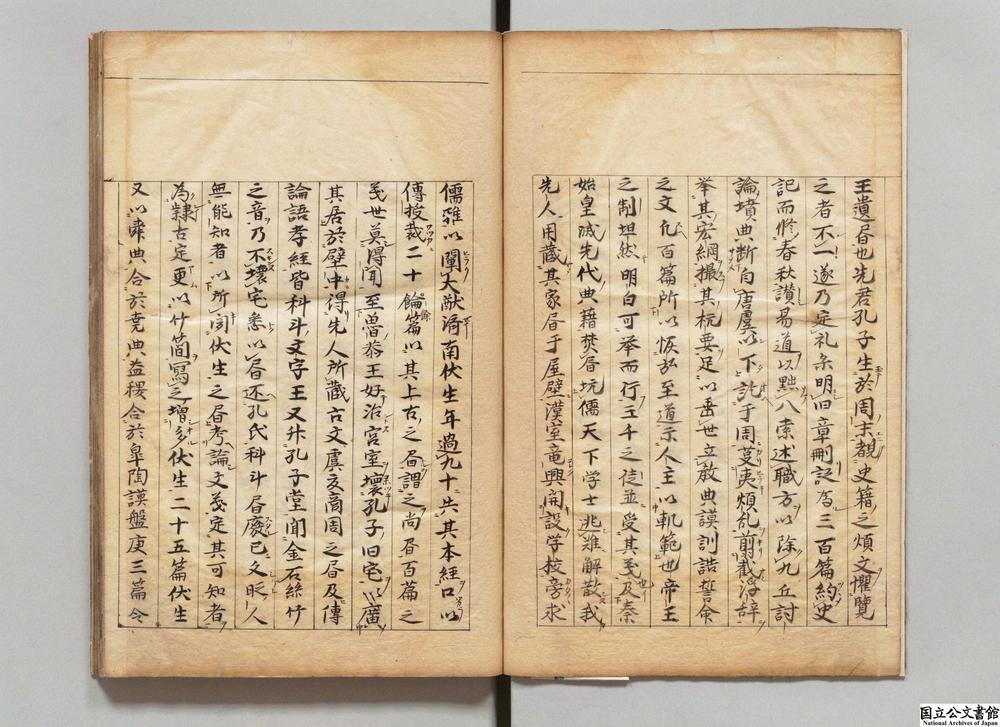 王遺昏也先君孔子生於周末覩史籍之煩文懼覽
之者不一遂乃定礼楽明旧章刪詩為三百篇約史
記而修春秋讃易道以黜八索述職方以除九丘討
論墳典断自唐虞以下訖于周芟夷煩乱剪截浮辞
挙其宏綱撮其机要足以垂世立教典謨訓誥誓命
之文凡百篇所以恢弘至道示人主以軌範也帝王
之制坦然明白可挙而行三千之徒並受其義及秦
始皇滅先代典籍焚昏坑儒天下学士逃難解散我
先人用蔵其家昏于屋壁漢室竜興開設学校旁求
儒雅以闡大猷済南伏生年過九十失其本経口以
傳授裁二十餘篇以其上古之昏謂之尚昏百篇之
義世莫得聞至魯恭王好治宮室壊孔子旧宅以廣
其居於壁中得先人所蔵古文虞夏商周之昏及傳
論語孝経皆科斗文字王又升孔子堂聞金石絲竹
之音乃不壊宅悉以昏还孔氏科斗昏廢已久时人
無能知者以所聞伏生之昏考論文義定其可知者
為隷古定更以竹簡寫之増多伏生二十五篇伏生
又以舜典合於堯典益稷合於皐陶謨盤庚三篇合
国立公文書館
National Archives of Japan